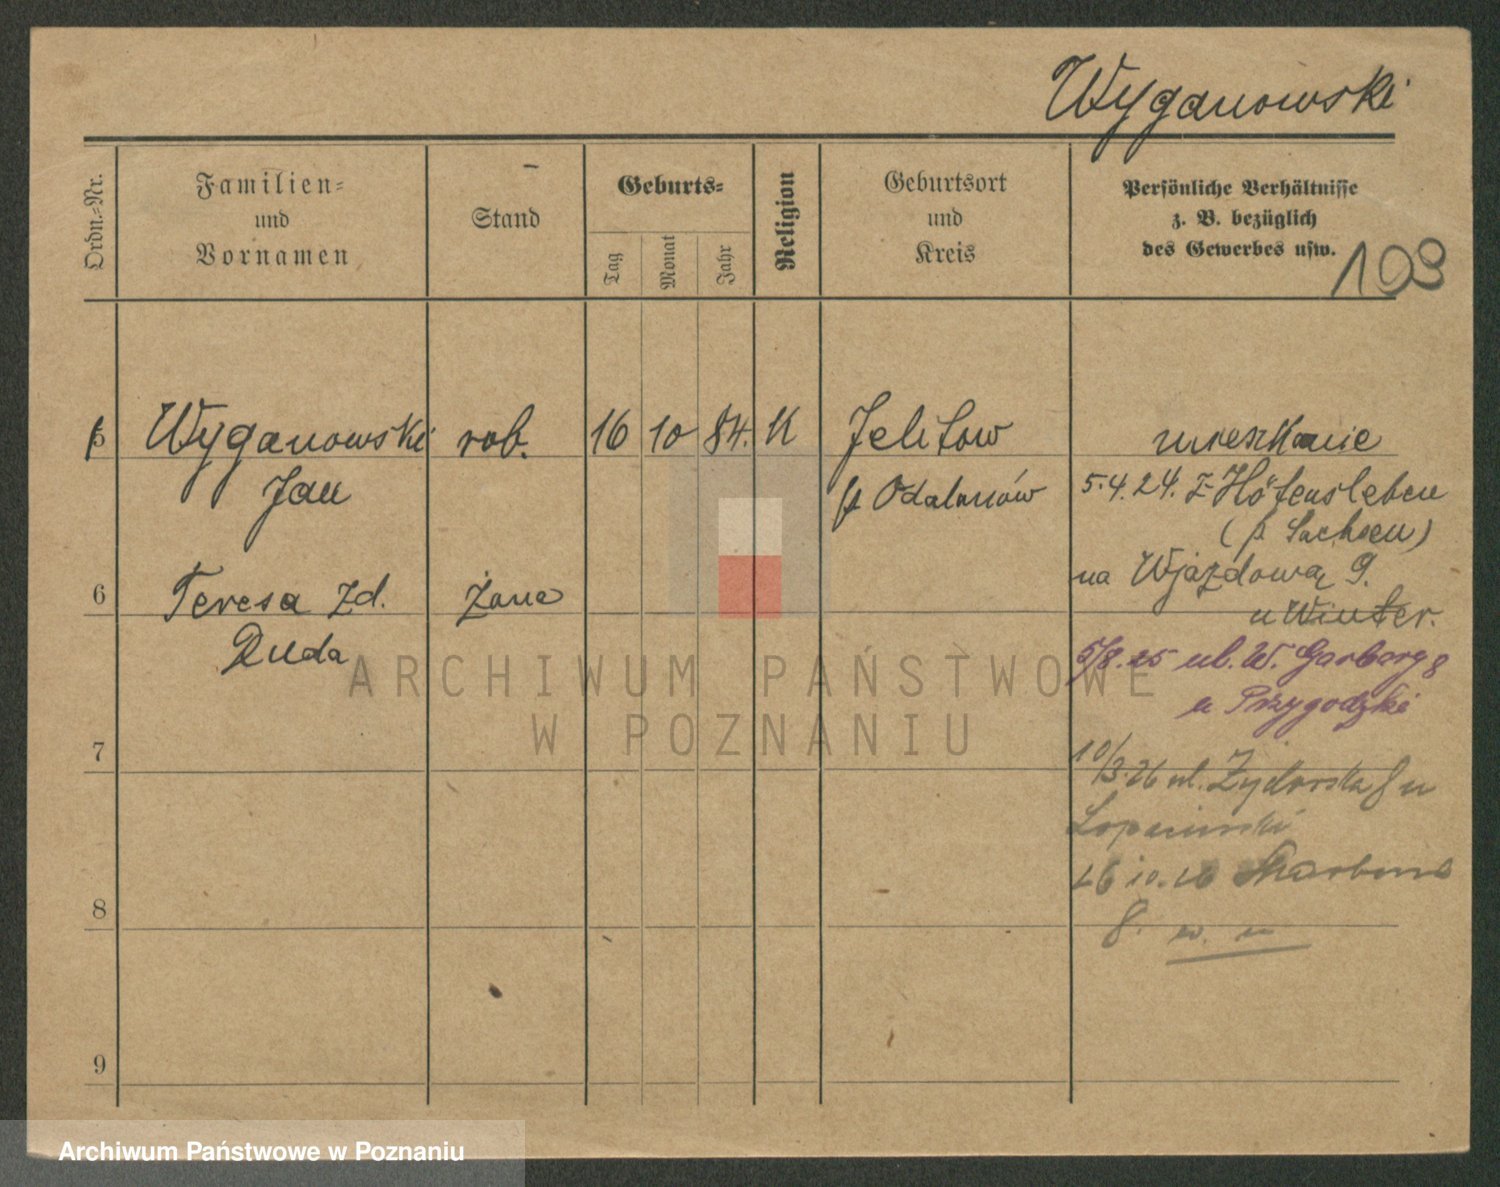 Wyganowski
Ordn.-Nr.
Familien-
und
Vornamen
Stand
Geburts-
Tag
Monat
Jahr
Religion
Geburtsort
und
Kreis
Persönliche Verhältnisse
z. B. bezüglich
des Gewerbes usw.
103
5 Wyganowski rob. 16 10 84. K Jelitow mieszkanie
Jan p Odalanów 5.4.24. z Hötensleben
(p. Sachsen)
na Wjazdową 9.
6 Teresa zd. żona
u Winter.
Duda
5/8.25 ul. W. Garbary 8
u Przygodzki
ARCHIWUM PAŃSTWOWE
W POZNANIU
7
10/3.26 ul. Żydowska 8 u
Łopacinski
26.10.26
8
8. w. m
9
Archiwum Państwowe w Poznaniu